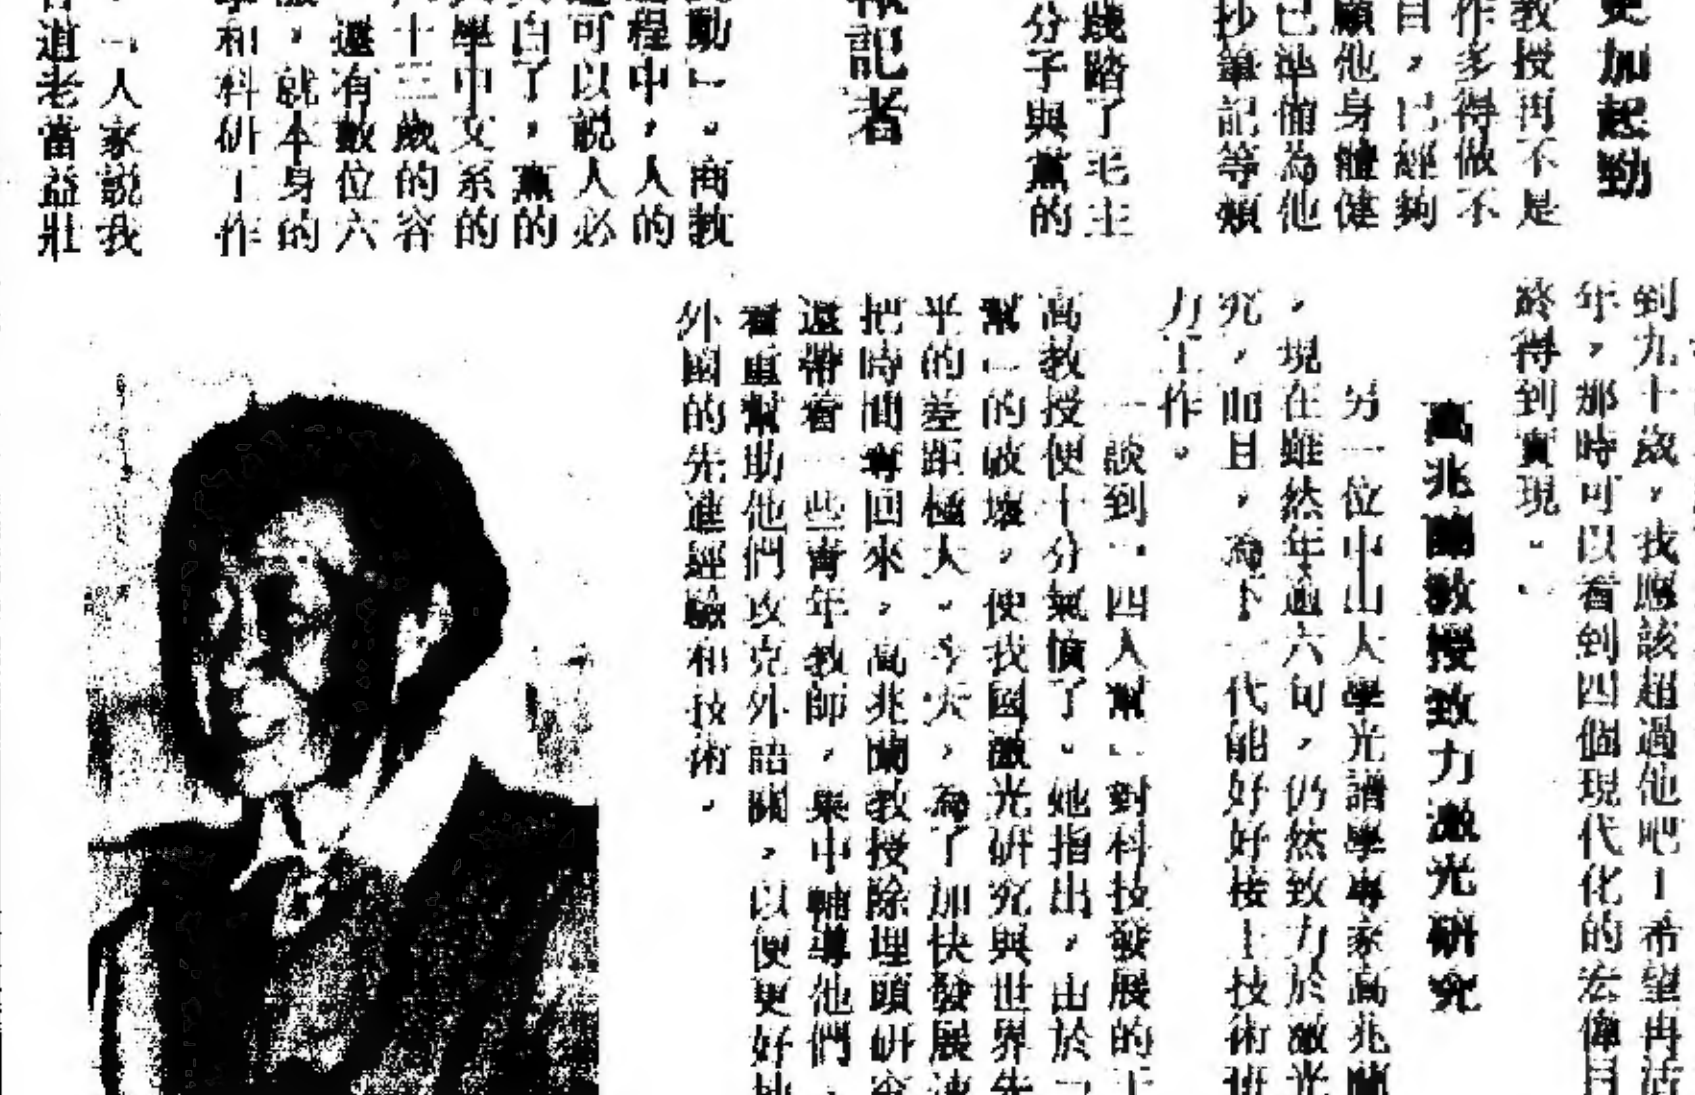 更加起勁
教授再不是
作多得做不
目，已經夠
顧他身體健
已準備為他
抄筆記等煩
踐踏了毛主
分子與黨的
報記者
動」。商教
程中，人的
可以説人必
白了，黨的
學中文系的
十三歲的容
還有數位六
，就本身的
和科研工作
，「人家説我
道老當益壯
到九十歲，我應該超過他吧！希望再活
年，那時可以看到四個現代化的宏偉目
終得到實現。」
高兆蘭教授致力激光研究
另一位中山大學光譜學專家高兆蘭
，現在雖然年過六旬，仍然致力於激光
究，而且，為下一代能好好接上技術班
力工作。
一談到「四人幫」對科技發展的
高教授便十分氣憤了。她指出，由於「
幫」的破壞，使我國激光研究與世界先
平的差距極大。今天，為了加快發展速
把時間奪回來，高兆蘭教授除埋頭研究
還帶着一些青年教師，集中輔導他們，
着重幫助他們攻克外語關，以便更好地
外國的先進經驗和技術。